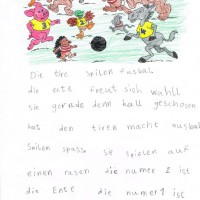 Die tire Spilen fusbal
die ente freut sich wahll
sie gerade denn ball geschosen
hat den tiren macht ausbal
Spilen spass sie spielen auf
einen rasen die numer 2 ist
die Ente die numer 1 ist